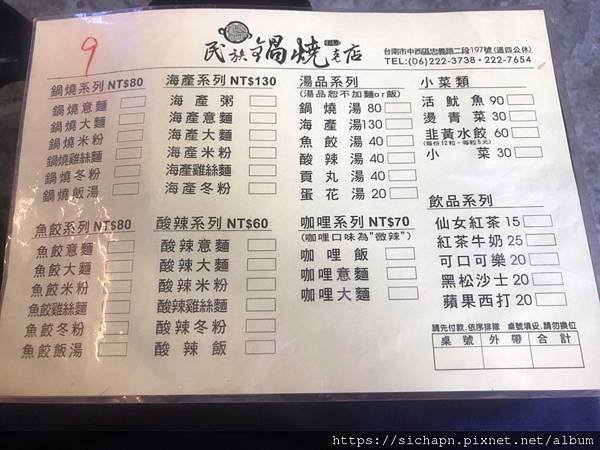 9
民族鍋燒老店
台南市中西區忠義路二段197號(週四公休)
TEL:(06)222-3738・222-7654
鍋燒系列 NT$80
鍋燒意麵
鍋燒大麵
鍋燒米粉
鍋燒雞絲麵
鍋燒冬粉
鍋燒飯湯
海產系列 NT$130
海產粥
海產意麵
海產大麵
海產米粉
海產雞絲麵
海產冬粉
湯品系列
(湯品恕不加麵or飯)
鍋燒湯 80
海產湯 130
魚餃湯 40
酸辣湯 40
貢丸湯 40
蛋花湯 20
小菜類
活魷魚 90
燙青菜 30
韭黃水餃 60
(每份12粒,每粒5元)
小菜 30
魚餃系列 NT$80
魚餃意麵
魚餃大麵
魚餃米粉
魚餃雞絲麵
魚餃冬粉
魚餃飯湯
酸辣系列 NT$60
酸辣意麵
酸辣大麵
酸辣米粉
酸辣雞絲麵
酸辣冬粉
酸辣飯
咖哩系列 NT$70
(咖哩口味為"微辣")
咖哩飯
咖哩意麵
咖哩大麵
飲品系列
仙女紅茶 15
紅茶牛奶 25
可口可樂 20
黑松沙士 20
蘋果西打 20
請先付款.依序排隊 桌號填妥.請勿換位
桌號 外帶 合計
https://sichapn.pixnet.net/album